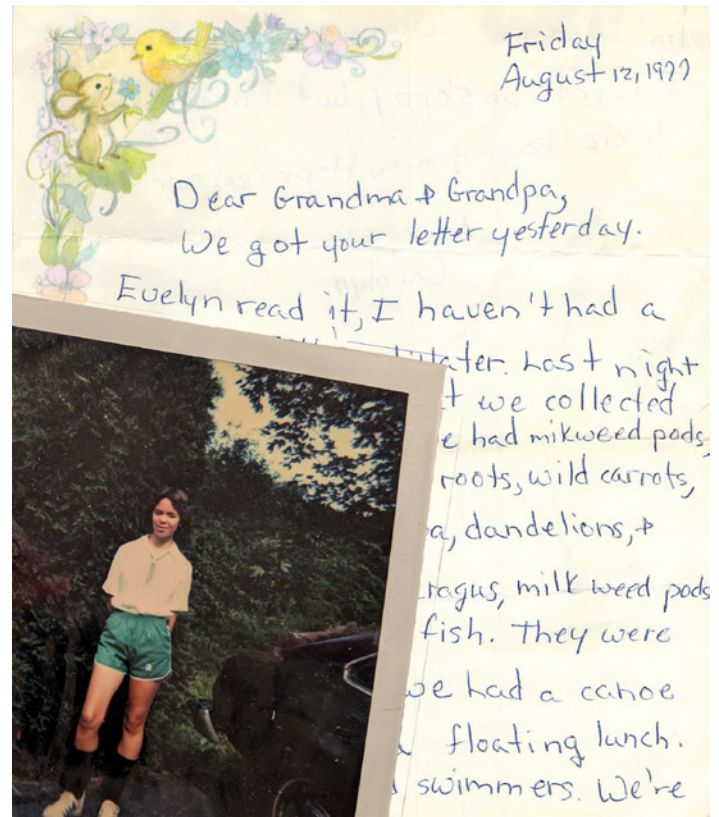 Friday
August 12, 1977
Dear Grandma & Grandpa,
We got your letter yesterday.
Evelyn read it, I haven't had a
later. Last night
t we collected
e had mikweed pods,
roots, wild carrots,
a, dandelions, &
ragus, milk weed pods
fish. They were
we had a canoe
floating lunch.
swimmers. We're